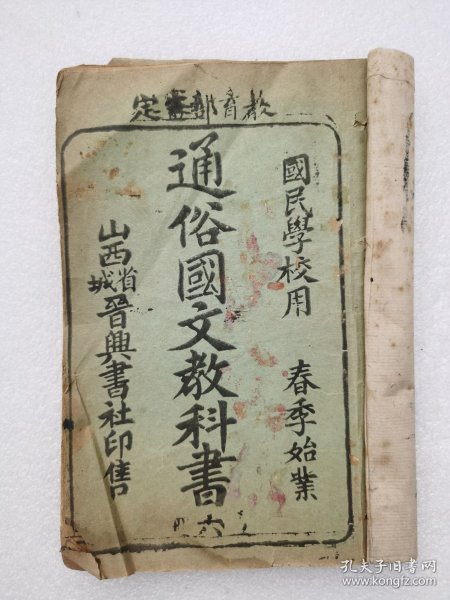 教育部審定
國民學校用 春季始業
通俗國文教科書 六
山西省城晉興書社印售
孔夫子旧书网
www.kongfz.com